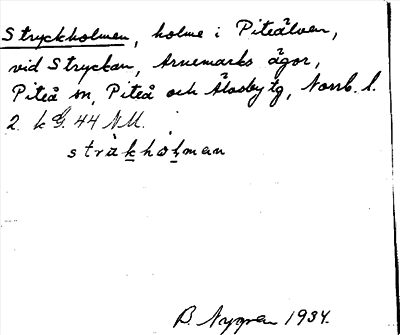 Stryckholmen, holme i Piteälven,
vid Stryckan, Arnemarks ägor,
Piteå sn, Piteå och Älvsby tg, Norrb. l.
2. k G. 44 NM.
sträkholman
B. Nygren 1934.